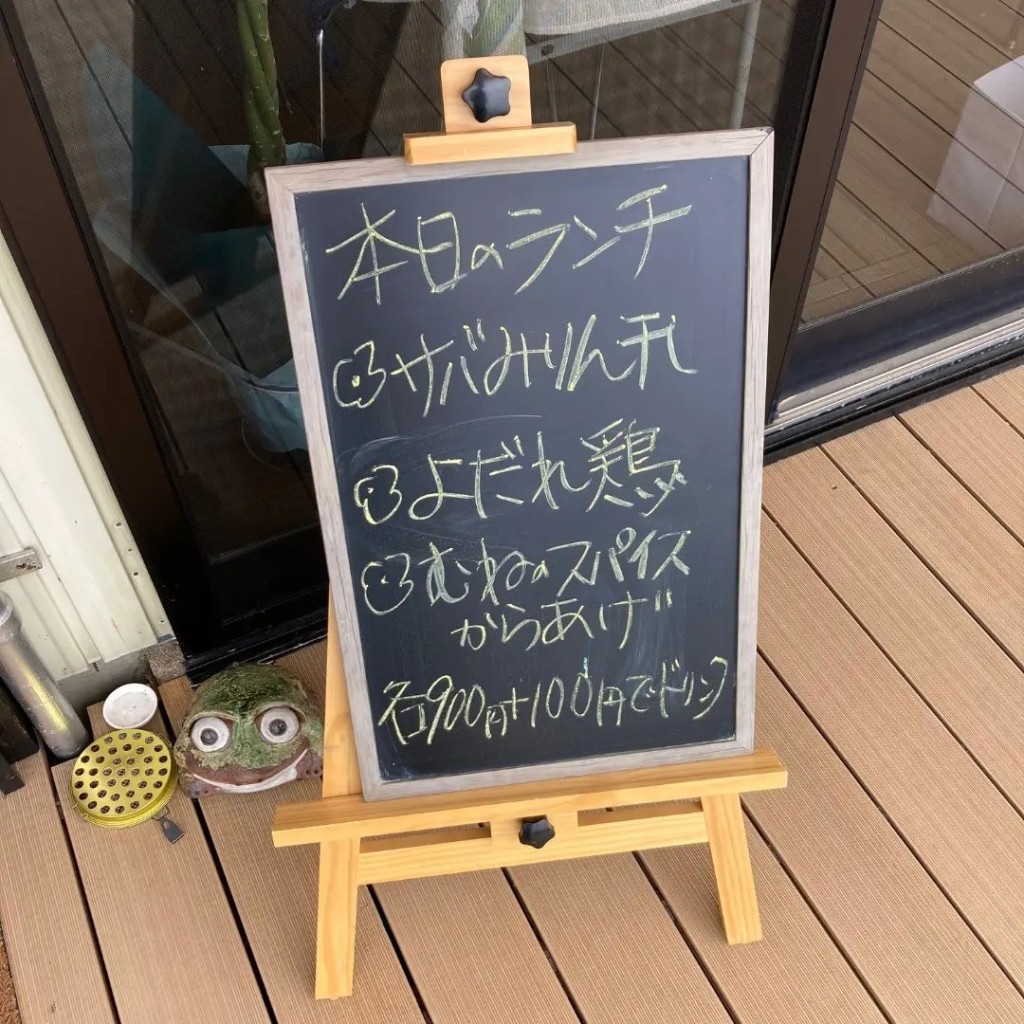 本日のランチ
サバみりん干し
よだれ鶏
むねのスパイス
からあげ
各900円+100円でドリンク